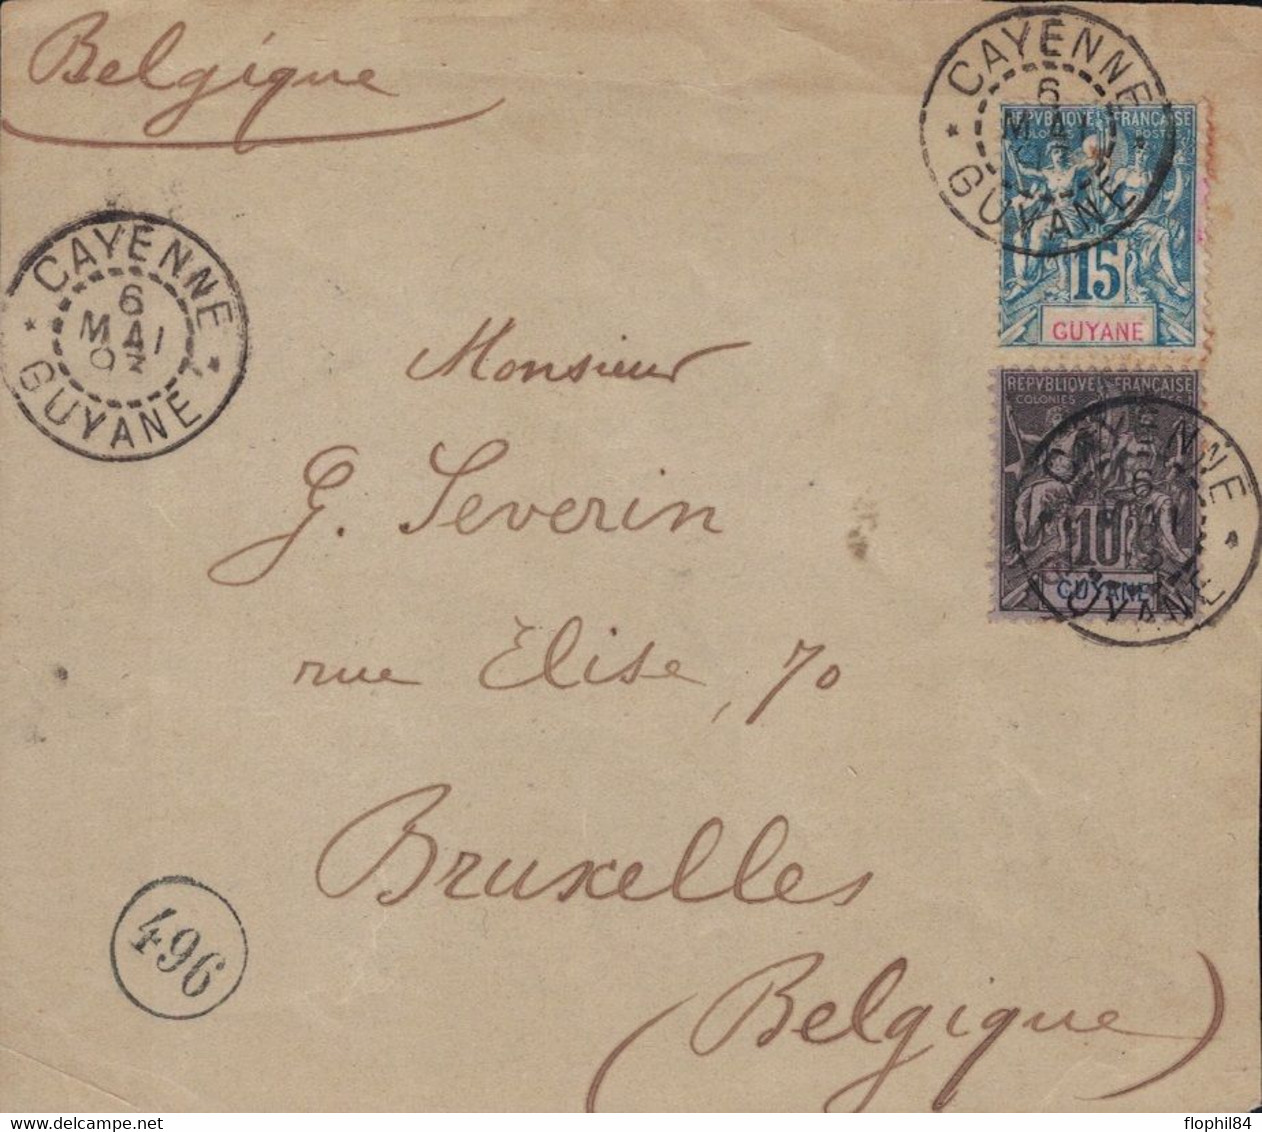 Belgique
CAYENNE
6
MAI
GUYANE
REPVBLIQUE FRANÇAISE
COLONIES POSTES
15
GUYANE
CAYENNE
6
MAI
03
GUYANE
Monsieur
REPVBLIQUE FRANÇAISE
COLONIES POSTES
10
GUYANE
CAYENNE
6
GUYANE
G. Severin
rue Elise, 70
Bruxelles
496
(Belgique)
flophil84